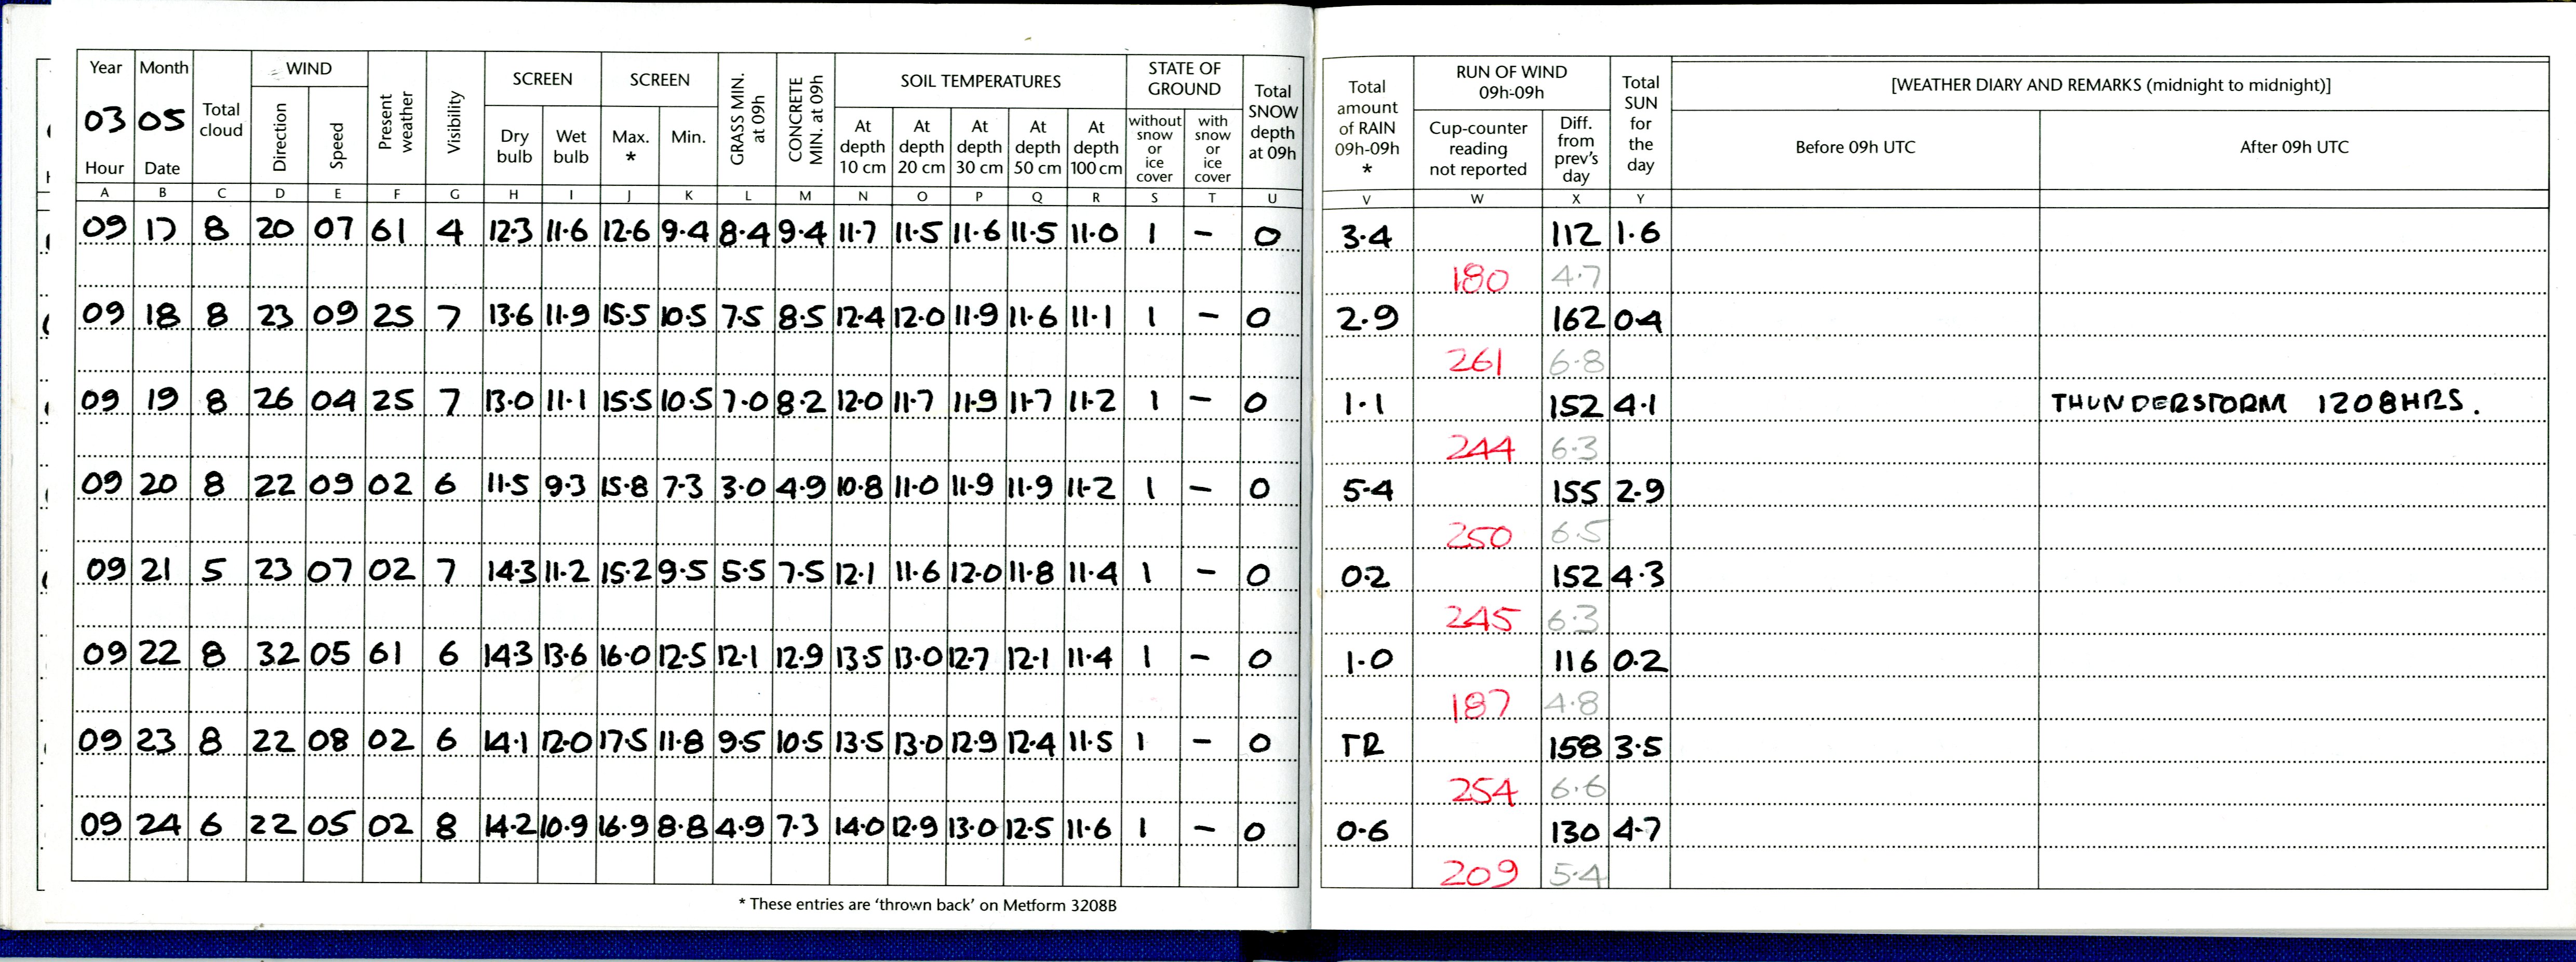 Year Month Total cloud WIND Present weather Visibility SCREEN SCREEN GRASS MIN. at 09h CONCRETE MIN. at 09h SOIL TEMPERATURES STATE OF GROUND Total SNOW depth at 09h Total amount of RAIN 09h-09h * RUN OF WIND 09h-09h Total SUN for the day [WEATHER DIARY AND REMARKS (midnight to midnight)]
03 05 Direction Speed Dry bulb Wet bulb Max. * Min. At depth 10 cm At depth 20 cm At depth 30 cm At depth 50 cm At depth 100 cm without snow or ice cover with snow or ice cover Cup-counter reading not reported Diff. from prev's day Before 09h UTC After 09h UTC
Hour Date
A B C D E F G H I J K L M N O P Q R S T U V W X Y
09 17 8 20 07 61 4 12.3 11.6 12.6 9.4 8.4 9.4 11.7 11.5 11.6 11.5 11.0 1 - 0 3.4 112 1.6
180 4.7
09 18 8 23 09 25 7 13.6 11.9 15.5 10.5 7.5 8.5 12.4 12.0 11.9 11.6 11.1 1 - 0 2.9 162 0.4
261 6.8
09 19 8 26 04 25 7 13.0 11.1 15.5 10.5 7.0 8.2 12.0 11.7 11.9 11.7 11.2 1 - 0 1.1 152 4.1 THUNDERSTORM 1208HRS.
244 6.3
09 20 8 22 09 02 6 11.5 9.3 15.8 7.3 3.0 4.9 10.8 11.0 11.9 11.9 11.2 1 - 0 5.4 155 2.9
250 6.5
09 21 5 23 07 02 7 14.3 11.2 15.2 9.5 5.5 7.5 12.1 11.6 12.0 11.8 11.4 1 - 0 0.2 152 4.3
245 6.3
09 22 8 32 05 61 6 14.3 13.6 16.0 12.5 12.1 12.9 13.5 13.0 12.7 12.1 11.4 1 - 0 1.0 116 0.2
187 4.8
09 23 8 22 08 02 6 14.1 12.0 17.5 11.8 9.5 10.5 13.5 13.0 12.9 12.4 11.5 1 - 0 TR 158 3.5
254 6.6
09 24 6 22 05 02 8 14.2 10.9 16.9 8.8 4.9 7.3 14.0 12.9 13.0 12.5 11.6 1 - 0 0.6 130 4.7
209 5.4
* These entries are 'thrown back' on Metform 3208B